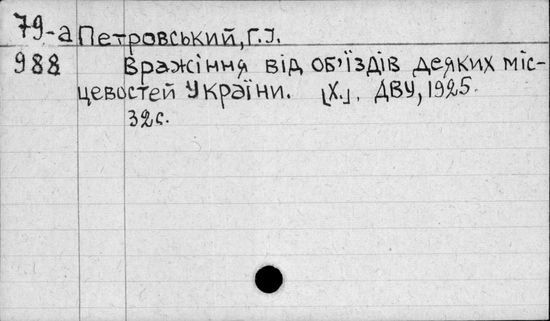 79-а Петровський, Г.І.
988 Вражіння від об'їздів деяких міс-
цевостей України. [Х.], ДВУ, 1925.
32с.